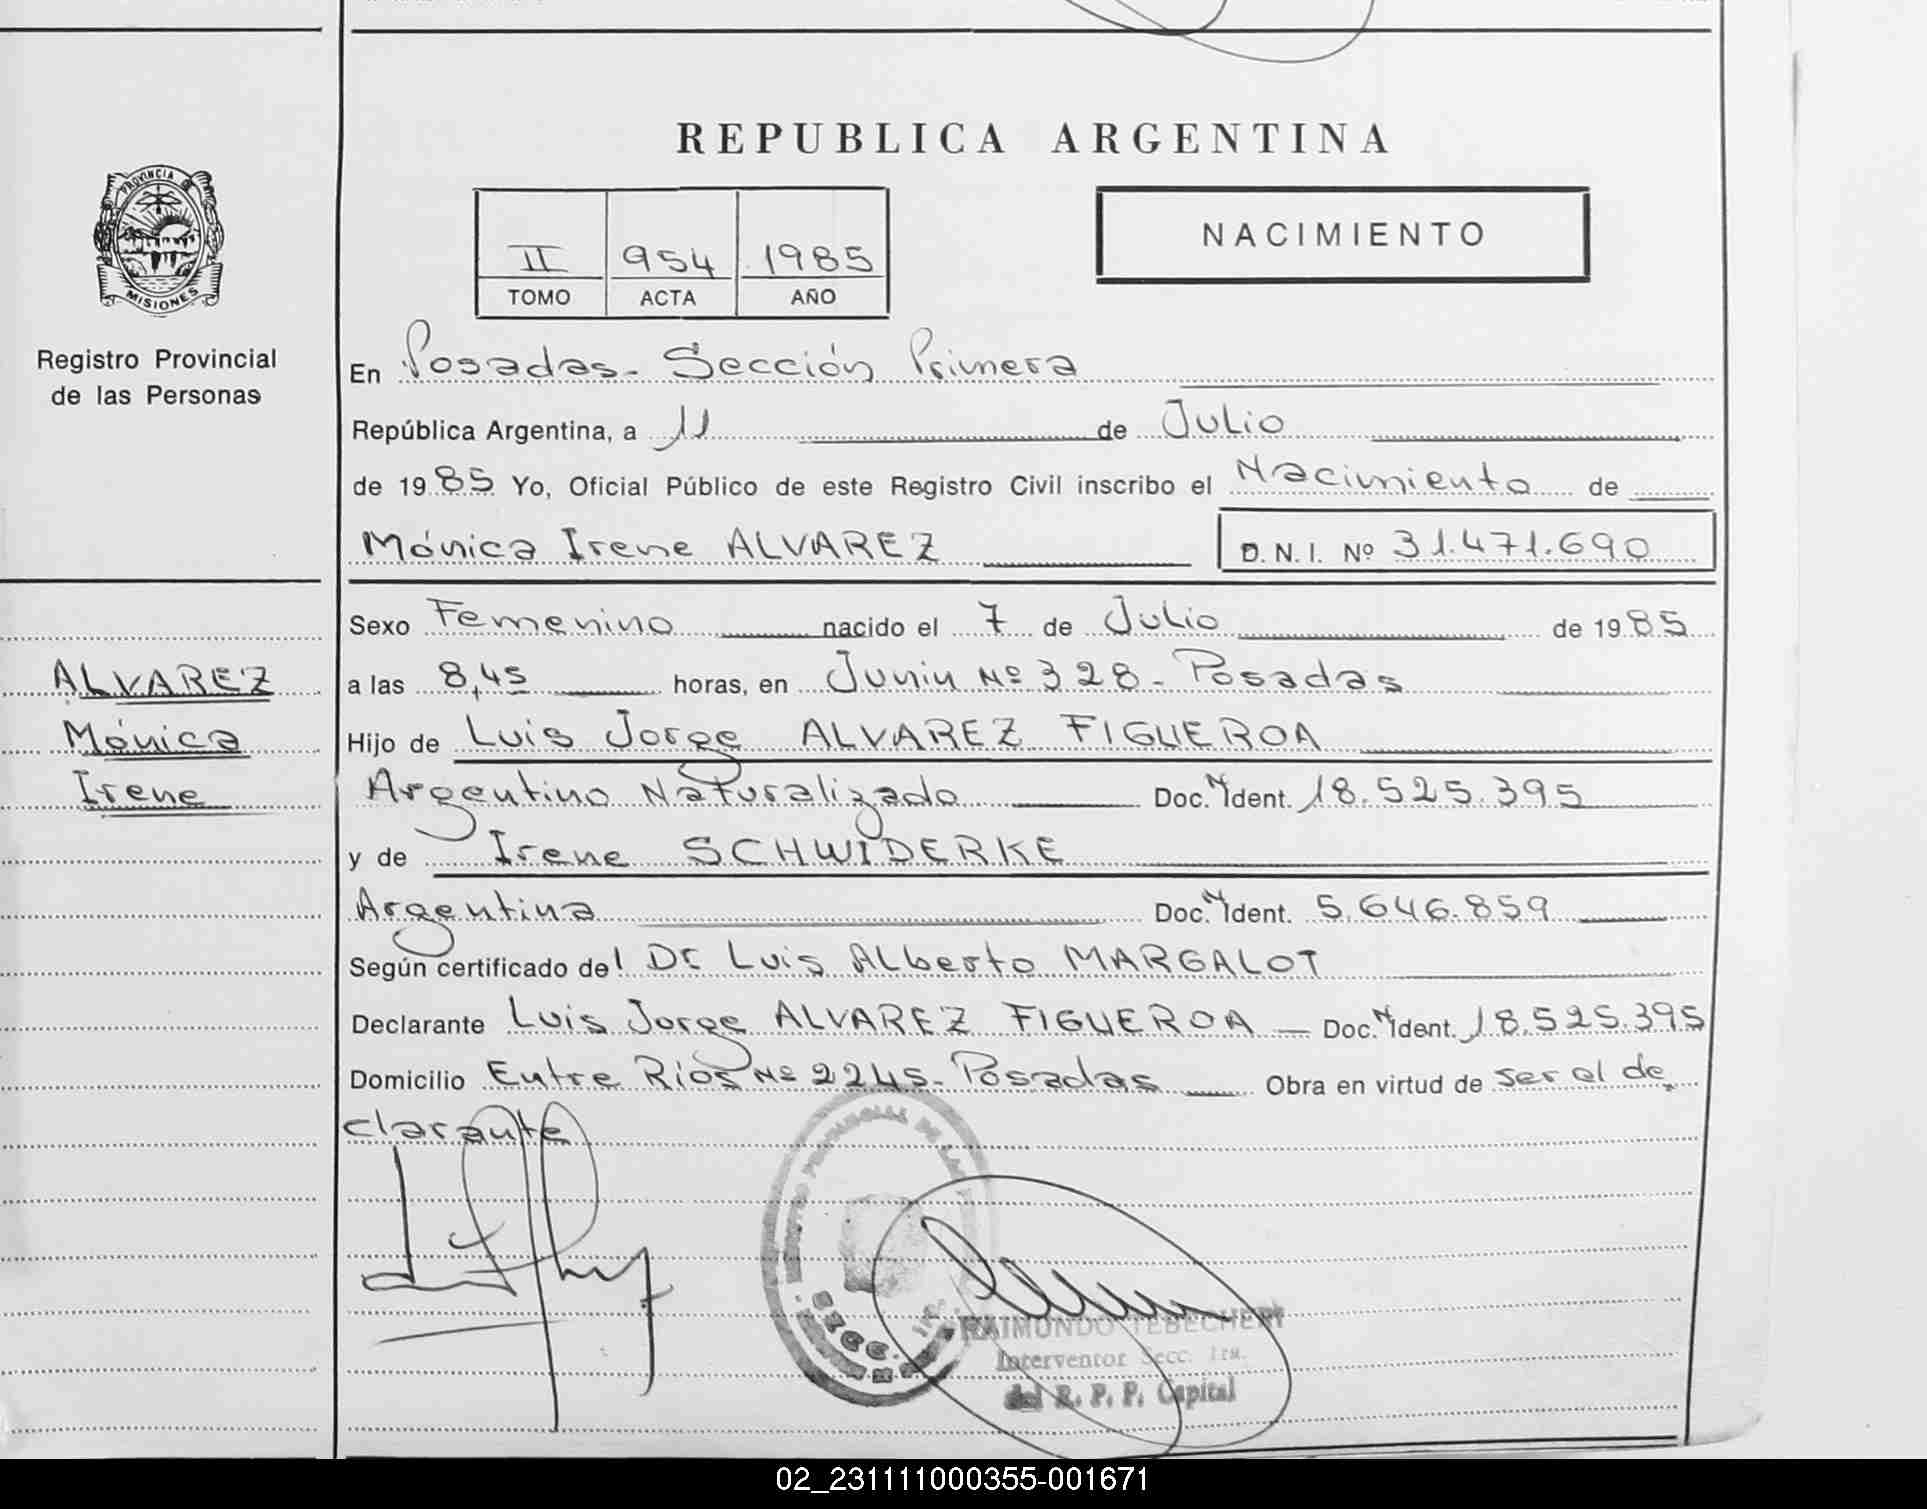 REPUBLICA ARGENTINA
PROVINCIA DE
MISIONES
Registro Provincial
de las Personas
II 954 1985
TOMO ACTA AÑO
NACIMIENTO
En Posadas - Sección Primera
República Argentina, a 11 de Julio
de 1985 Yo, Oficial Público de este Registro Civil inscribo el Nacimiento de
Mónica Irene ALVAREZ D. N. I. Nº 31.471.690
Sexo Femenino nacido el 7 de Julio de 1985
ALVAREZ
Mónica
Irene
a las 8,45 horas, en Junin Nº 328 - Posadas
Hijo de Luis Jorge ALVAREZ FIGUEROA
Argentino Naturalizado Doc. N. Ident. 18.525.395
y de Irene SCHWIDERKE
Argentina Doc. N. Ident. 5.646.859
Según certificado del Dr Luis Alberto MARGALOT
Declarante Luis Jorge ALVAREZ FIGUEROA - Doc. N. Ident. 18.525.395
Domicilio Entre Ríos Nº 2245 - Posadas Obra en virtud de ser el de
clarante
RAIMUNDO TEBECHERI
Interventor Secc. 1ra.
del R. P. P. Capital
02_231111000355-001671